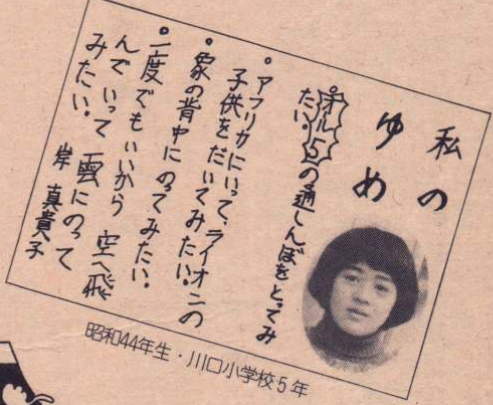 私の
ゆめ
・オール5の通しんぼをとってみ
たい。
・アフリカにいって、ライオンの
子供をだいてみたい。
・象の背中にのってみたい。
・一度でもいいから 空へ飛
んでいって 雲にのって
みたい。 岸 真貴子
昭和44年生・川口小学校5年